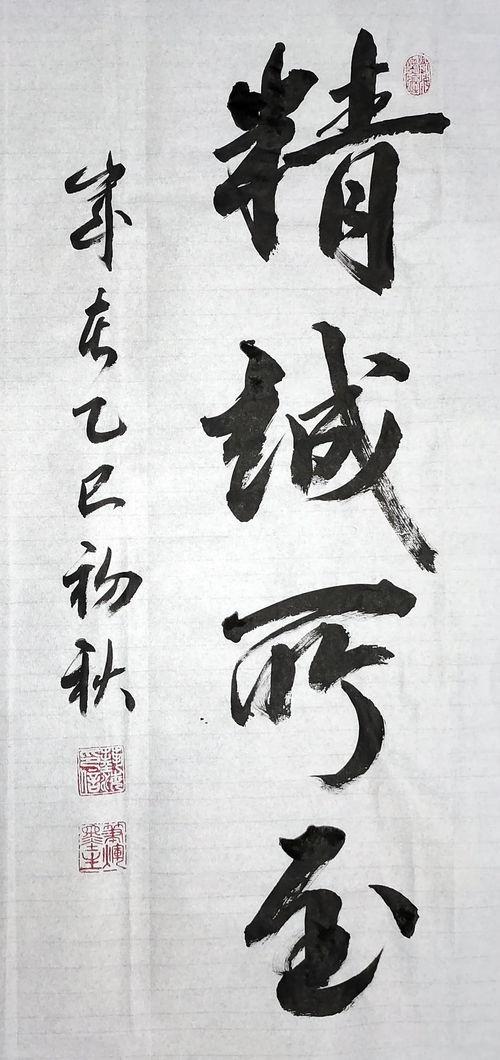 精誠所至
歲在乙巳初秋